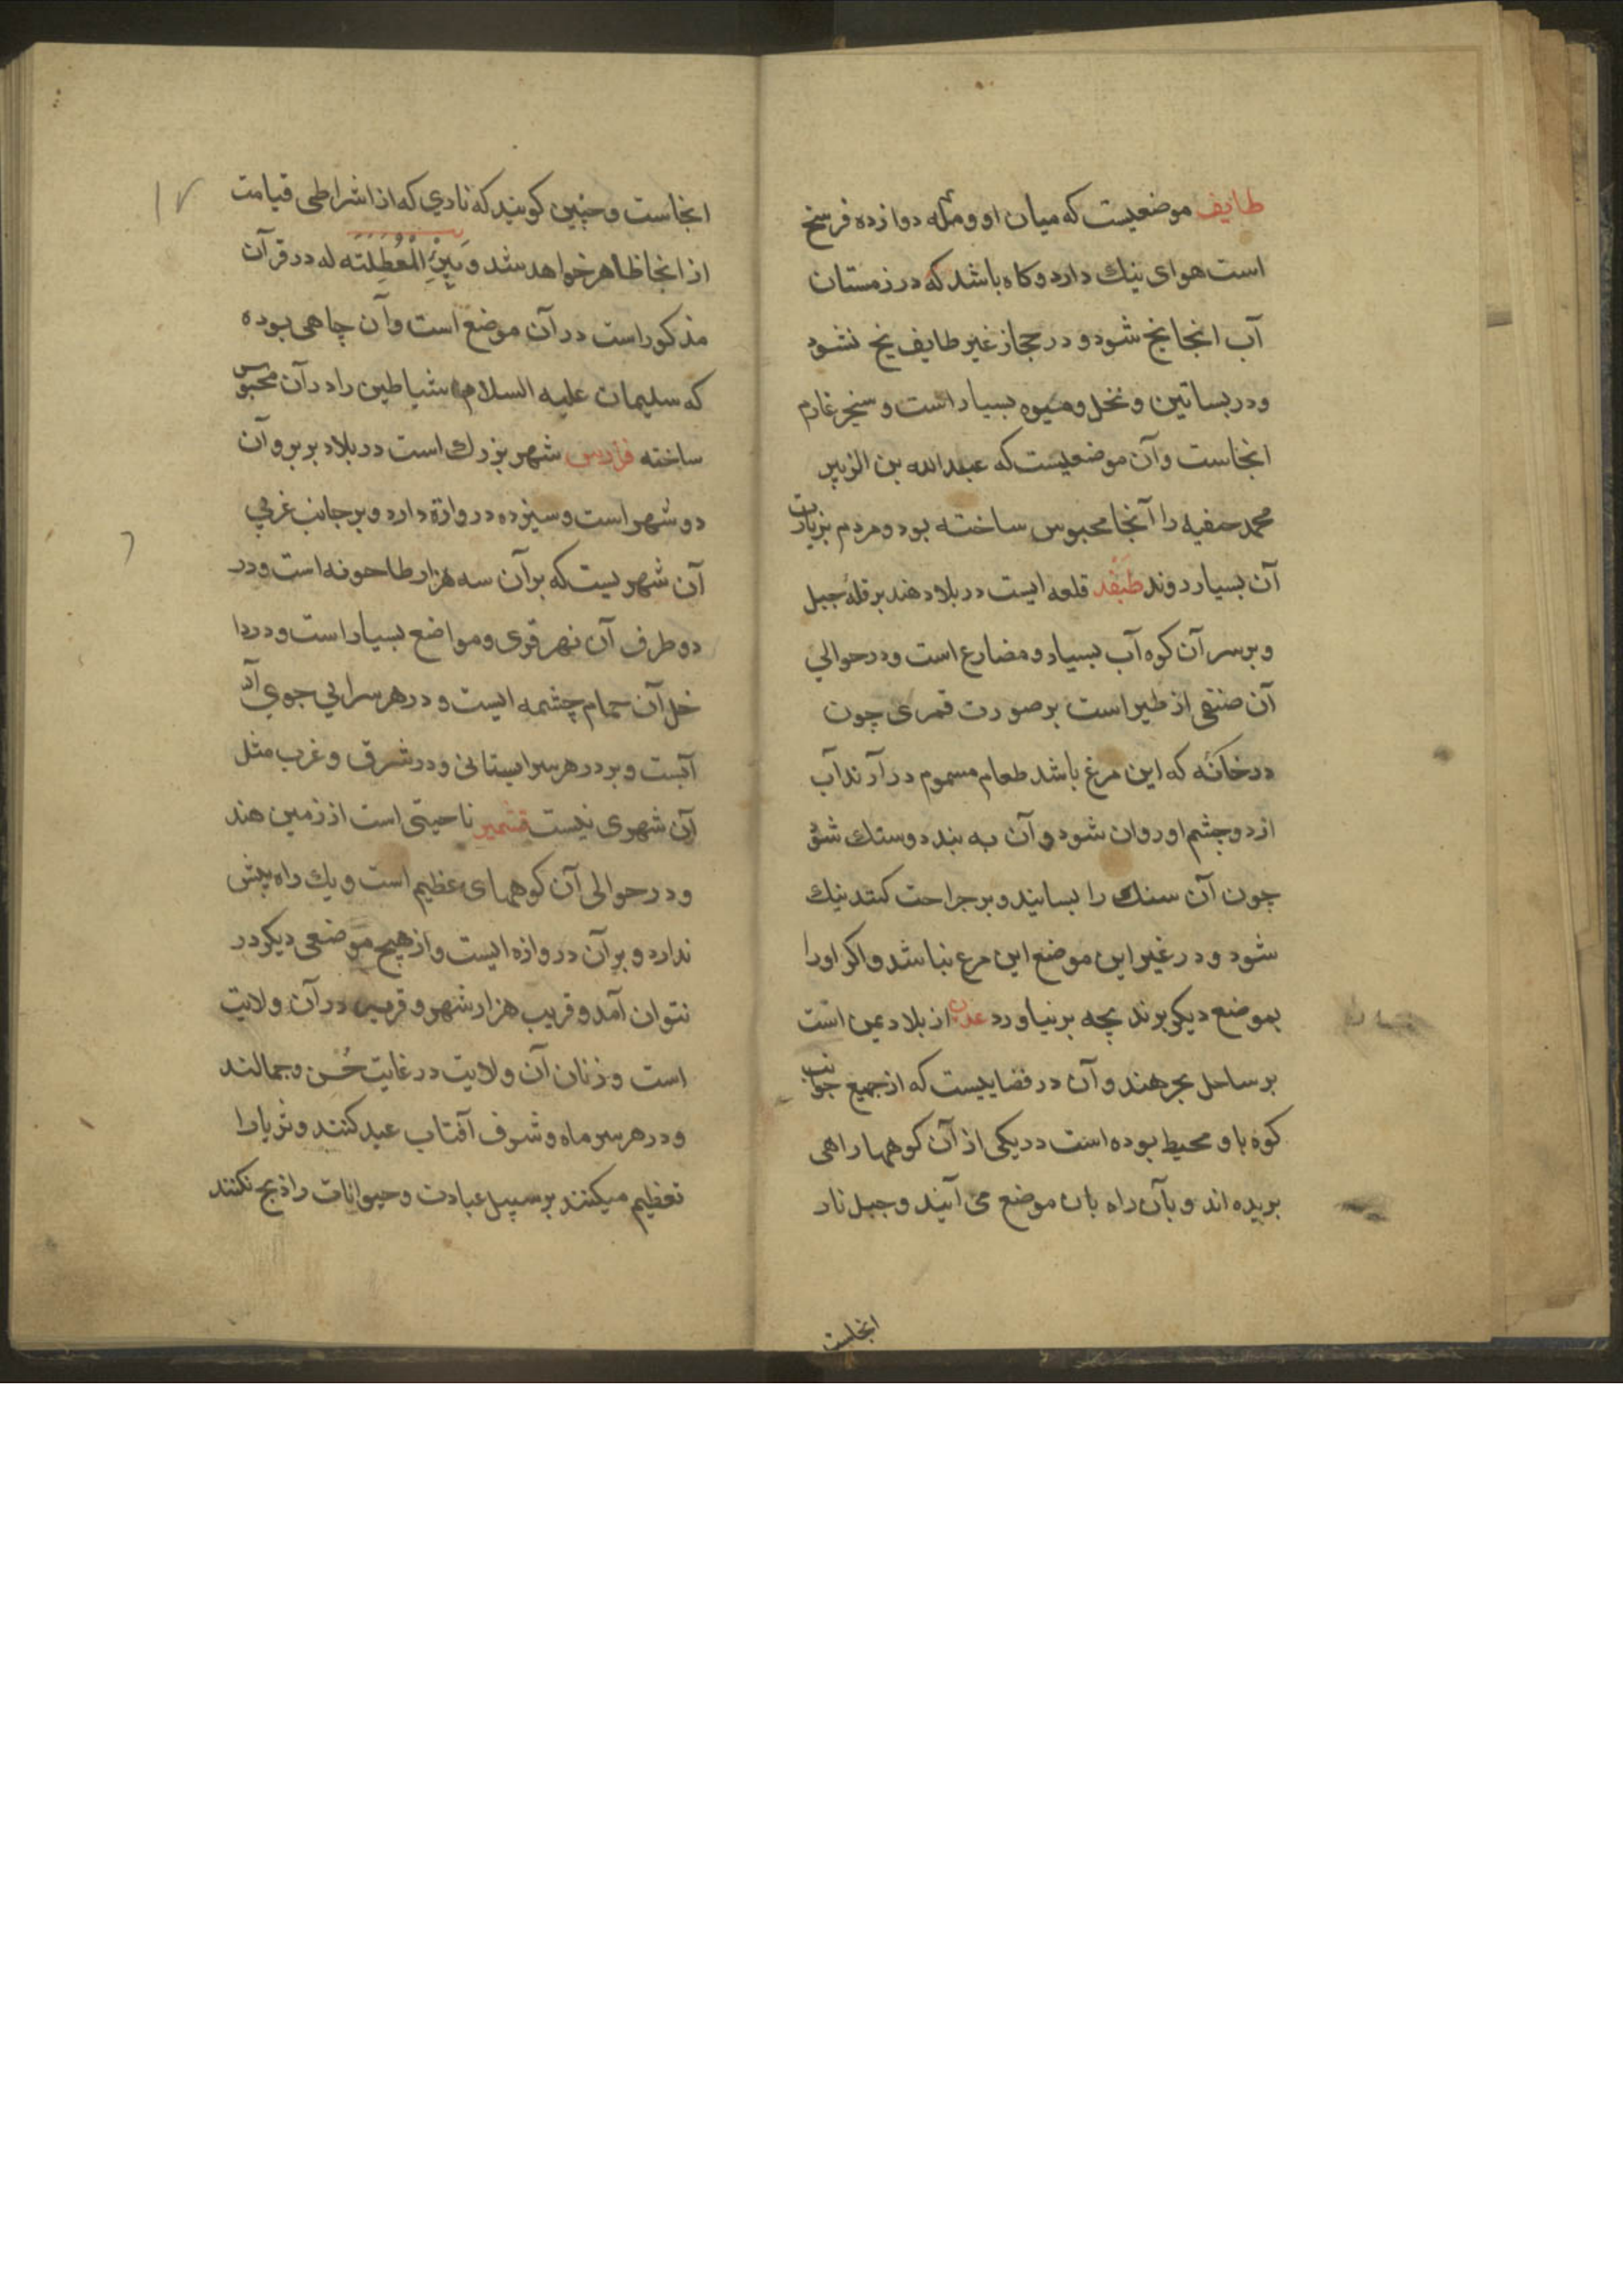 طایف موضعیست که میان او و مکه دوازده فرسخ
است هوای نیك دارد و کاه باشد که در زمستان
آب انجا یخ شود و در حجاز غیر طایف یخ نشود
و در بساتین و نخل و میوه بسیار است و سنجر غارم
انجاست و آن موضعیست که عبدالله بن الزبیر
محمد حنفیه را آنجا محبوس ساخته بود و مردم بزیارت
آن بسیار روند طیفند قلعه ایست در بلاد هند بر قلهٔ جبل
و بر سر آن کوه آب بسیار و مضارع است و در حوالي
آن صنفی از طیر است بر صورت قمری چون
در خانه که این مرغ باشد طعام مسموم در آرند آب
از دو چشم او روان شود و آن به بندد و سنك شود
چون آن سنك را بسایند و بر جراحت کنند نیك
شود و در غیر این موضع این مرع نباشد و اکر او را
بموضع دیکر برند بچه بر نیاورد عدن از بلاد یمن است
بر ساحل بحر هند و آن در فضاییست که از جمیع جوانب
کوه با و محیط بوده است در یکی از آن کوهها راهی
بریده اند و بآن راه بان موضع می آیند و جبل نار
انجاست
انجاست و چنین کویند که ناری که از اشراطی قیامت
از انجا ظاهر خواهد شد وَبِئْرِ الْمُعَطِّلَتَه له در قرآن
مذکور است در آن موضع است و آن چاهی بوده
که سلیمان علیه السلام شیاطین را در آن محبوس
ساخته فارس شهر بزرك است در بلاد بربر و آن
دو شهر است و سیزده دروازه دارد و بر جانب غربي
آن شهریست که بر آن سه هزار طاحونه است و در
دو طرف آن نهر قوی و مواضع بسیار است و در دا
خل آن حمام چشمه ایست و در هر سرایي جوي آ
آبست و بر در هر سرا بستانی و در شرق و غرب مثل
آن شهری نیست قشمیر ناحیتی است از زمین هند
و در حوالی آن کوههای عظیم است و یك راه بیش
ندارد و بر آن دروازه ایست و از هیچ موضعی دیکر در
نتوان آمد و قریب هزار شهر و قریه در آن ولایت
است و زنان آن ولایت در غایت حُسن و جمالند
و در هر سر ماه و شرف آفتاب عید کنند و ثریا را
تعظیم میکنند بر سبیل عبادت و حیوانات را ذبح نکنند